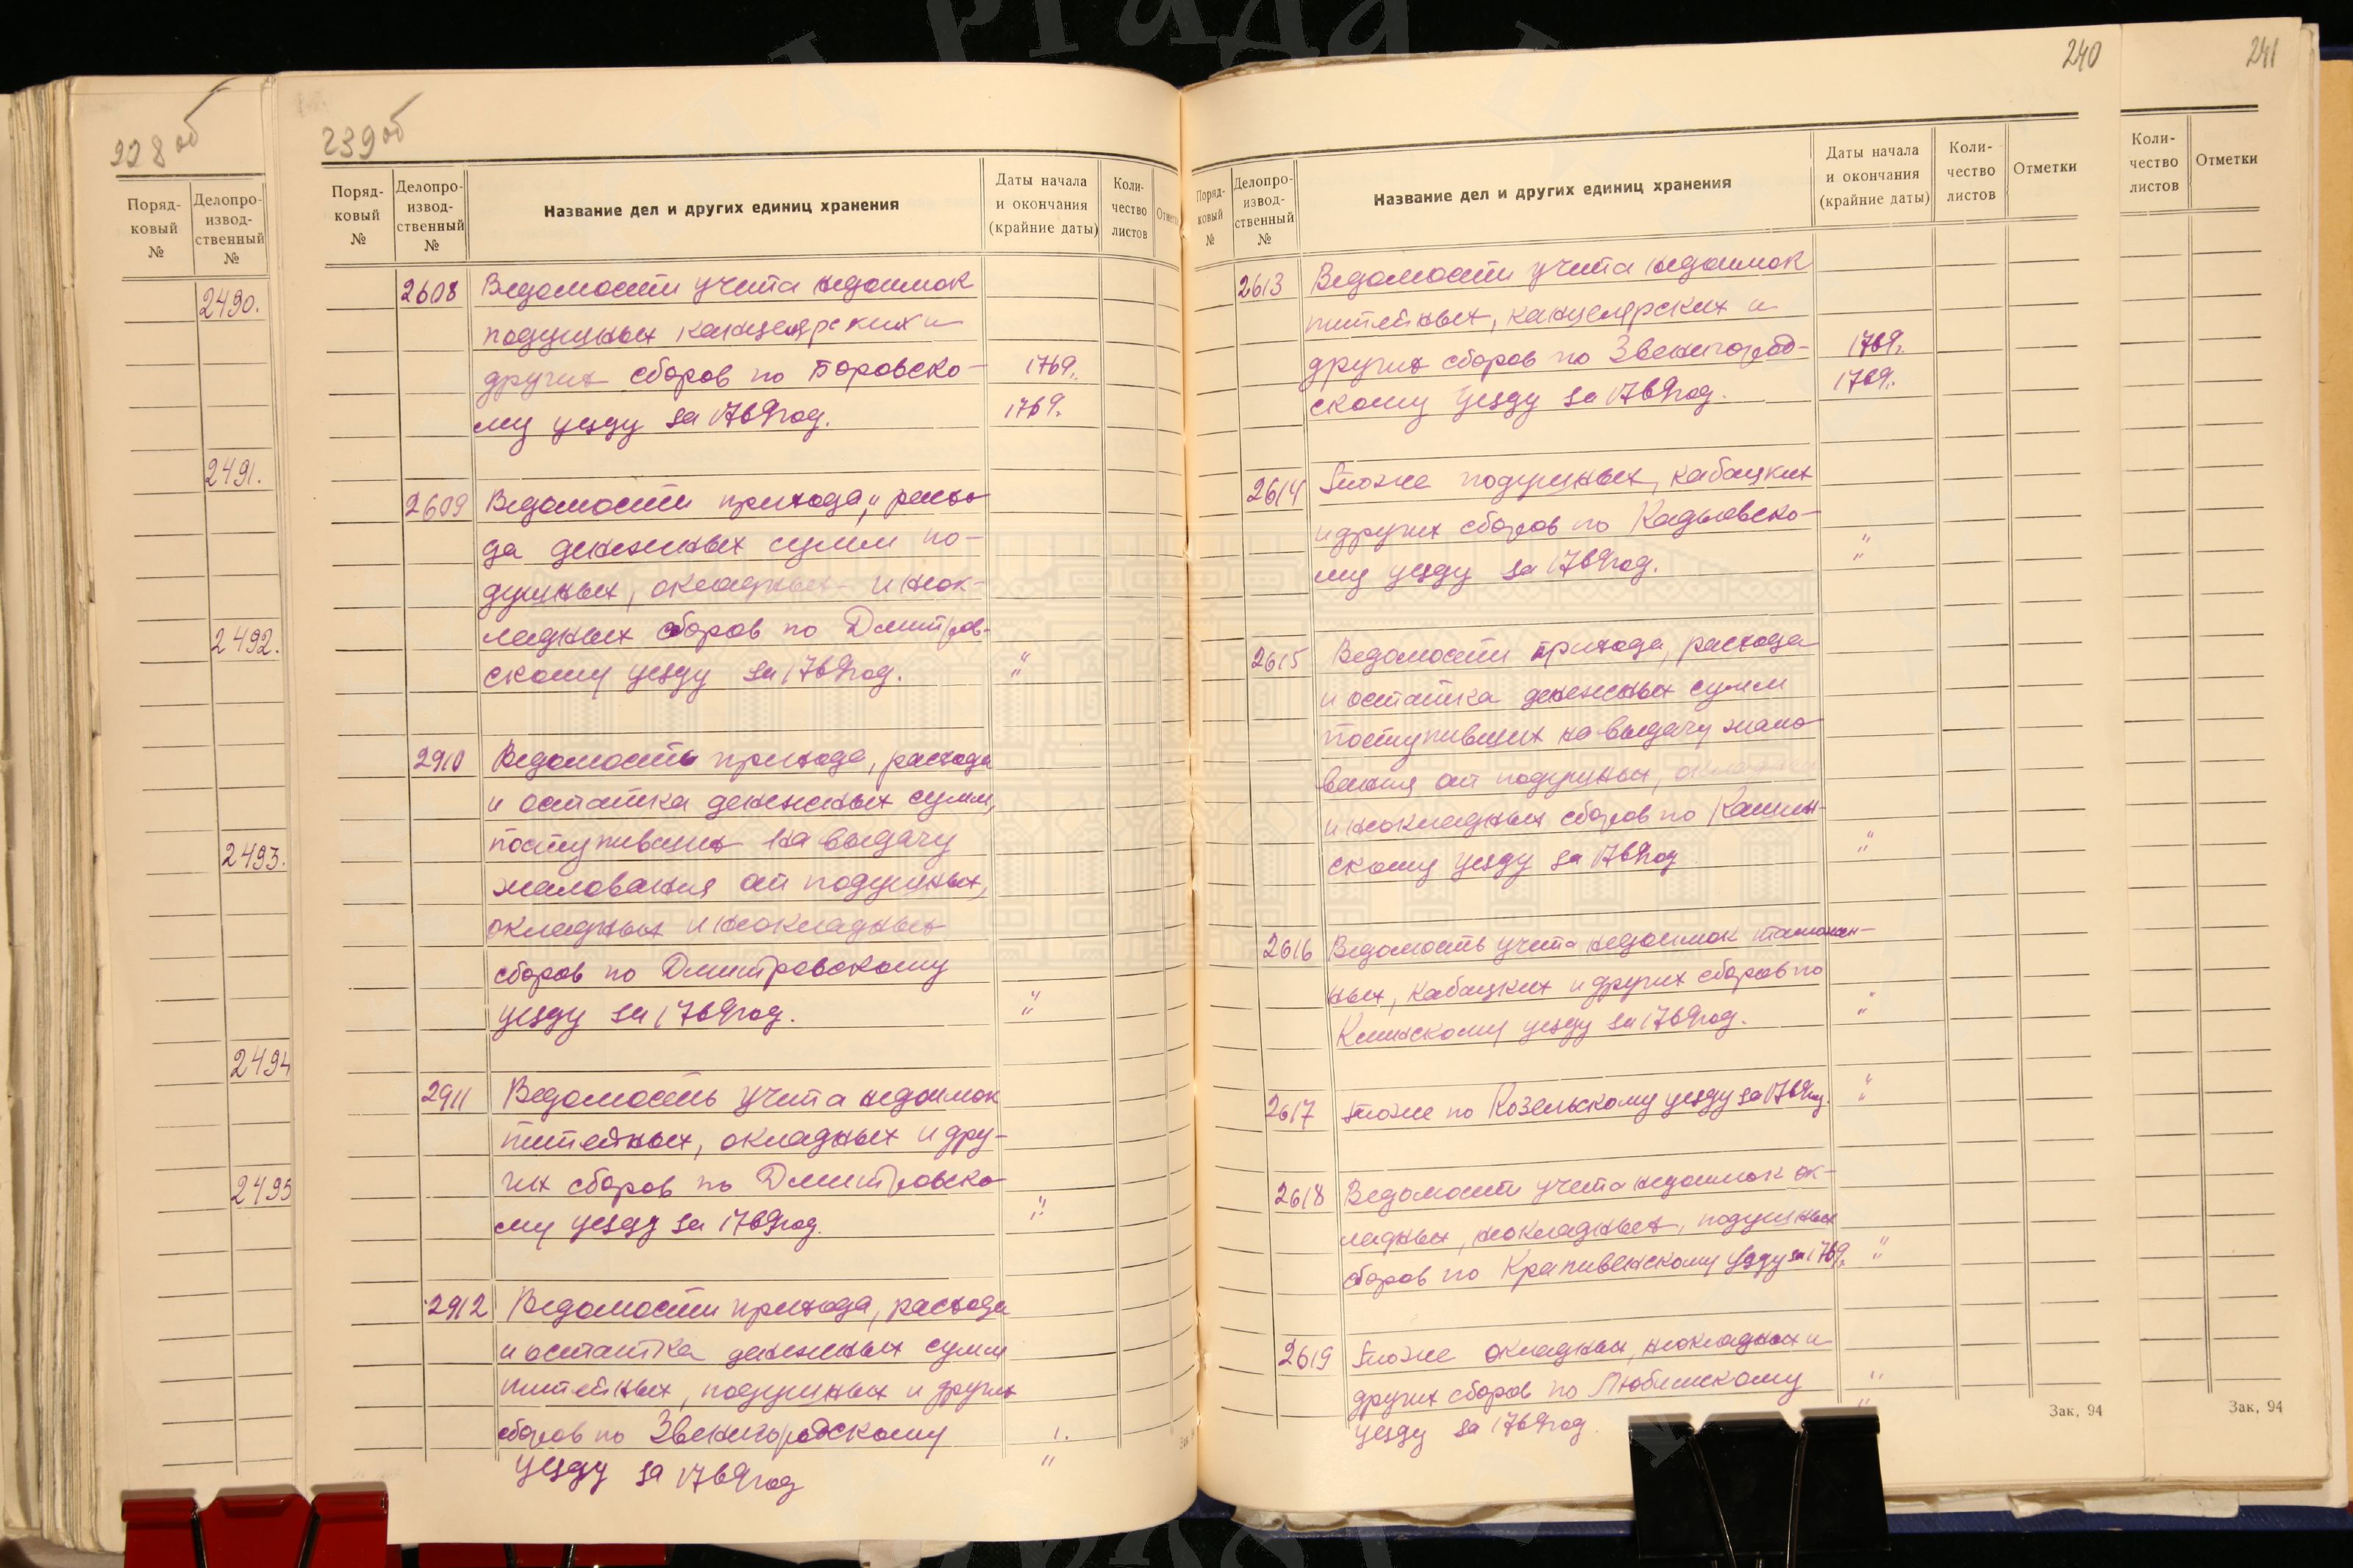 228об
Поряд-
ковый
№
Делопро-
извод-
ственный
№
2490.
2491.
2492.
2493.
2494
2495
239об
Поряд-
ковый
№
Делопро-
извод-
ственный
№
Название дел и других единиц хранения
Даты начала
и окончания
(крайние даты)
Коли-
чество
листов
2608 Ведомости учета недоимок
подушных канцелярских и
других сборов по Боровско- 1769.
му уезду за 1769 год. 1769.
2609 Ведомости прихода, и расхо
да денежных сумм по-
душных, окладных и неок-
ладных сборов по Дмитров-
скому уезду за 1769 год. "
"
2910 Ведомость прихода, расхода
и остатка денежных сумм,
поступивших на выдачу
жалования от подушных,
окладных и неокладных
сборов по Дмитровскому
уезду за 1769 год. "
"
2911 Ведомость учета недоимок
питейных, окладных и дру-
гих сборов по Дмитровско
му уезду за 1769 год. "
"
2912 Ведомости прихода, расхода
и остатка денежных сумм
питейных, подушных и других
сборов по Звенигородскому
уезду за 1769 год "
240
Поряд-
ковый
№
Делопро-
извод-
ственный
№
Название дел и других единиц хранения
Даты начала
и окончания
(крайние даты)
Коли-
чество
листов
Отметки
2613 Ведомости учета недоимок
питейных, канцелярских и
других сборов по Звенигород- 1769.
скому уезду за 1769 год. 1769.
2614 Тоже подушных, кабацких
и других сборов по Кадыевско-
му уезду за 1769 год. "
"
2615 Ведомости прихода, расхода
и остатка денежных сумм
поступивших на выдачу жало
вания от подушных, окладных
и неокладных сборов по Кашин-
скому уезду за 1769 год "
"
2616 Ведомость учета недоимок таможен-
ных, кабацких и других сборов по
Клинскому уезду за 1769 год. "
"
2617 Тоже по Козельскому уезду за 1769 год "
"
2618 Ведомости учета недоимок ок-
ладных, неокладных, подушных
сборов по Крапивенскому уезду за 1769. "
"
2619 Тоже окладных, неокладных и
других сборов по Любимскому "
уезду за 1769 год. "
Зак. 94
241
Коли-
чество
листов
Отметки
Зак. 94